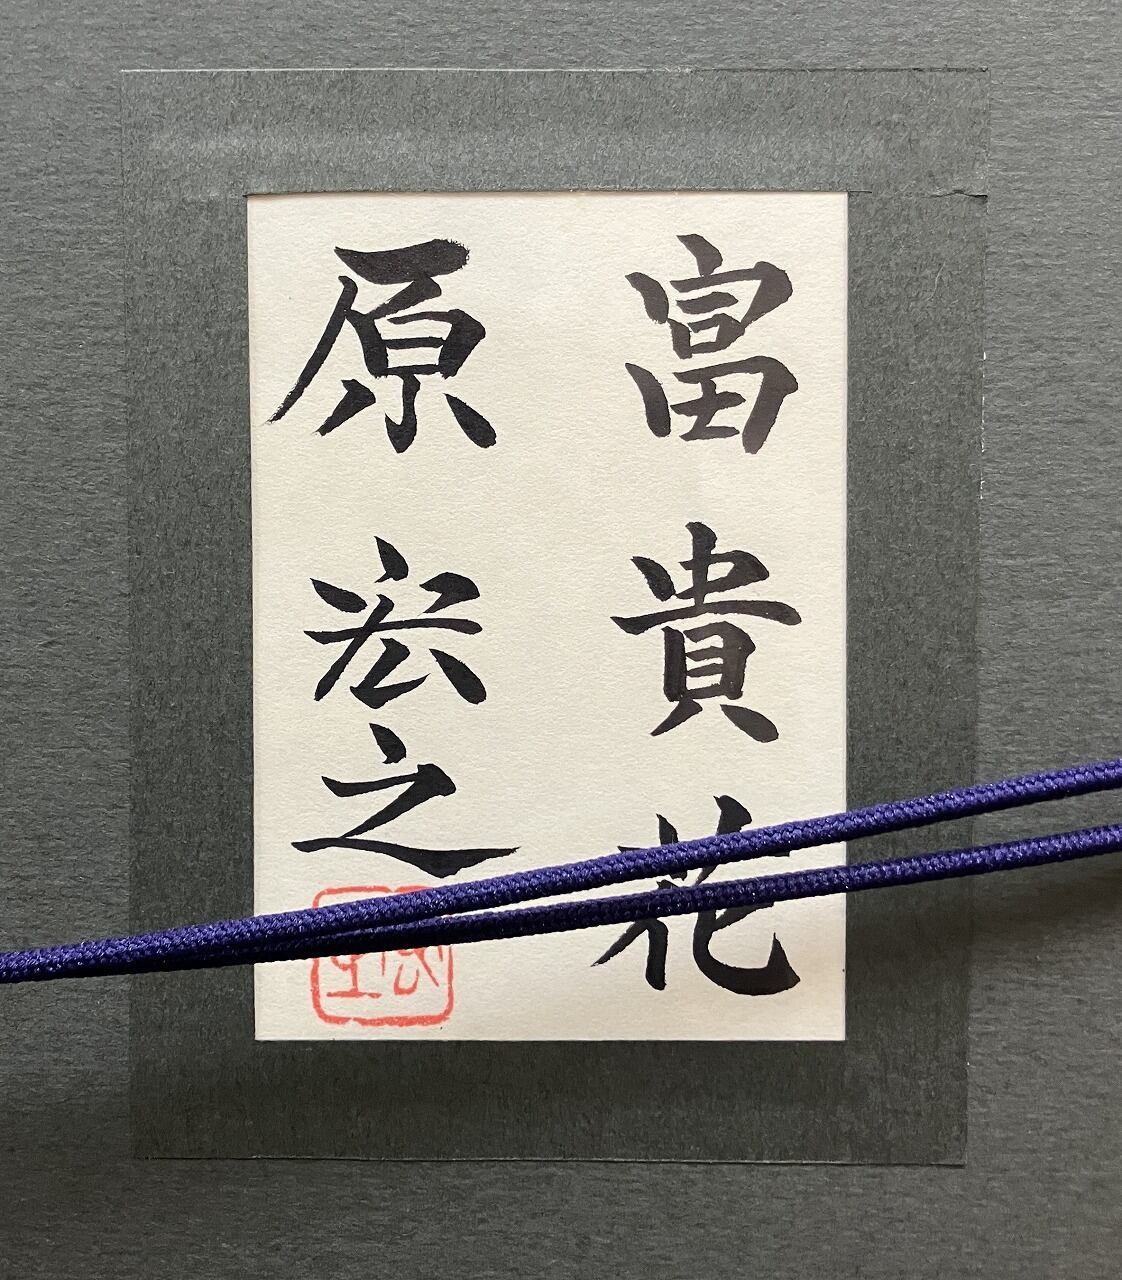 富貴花
原宏之